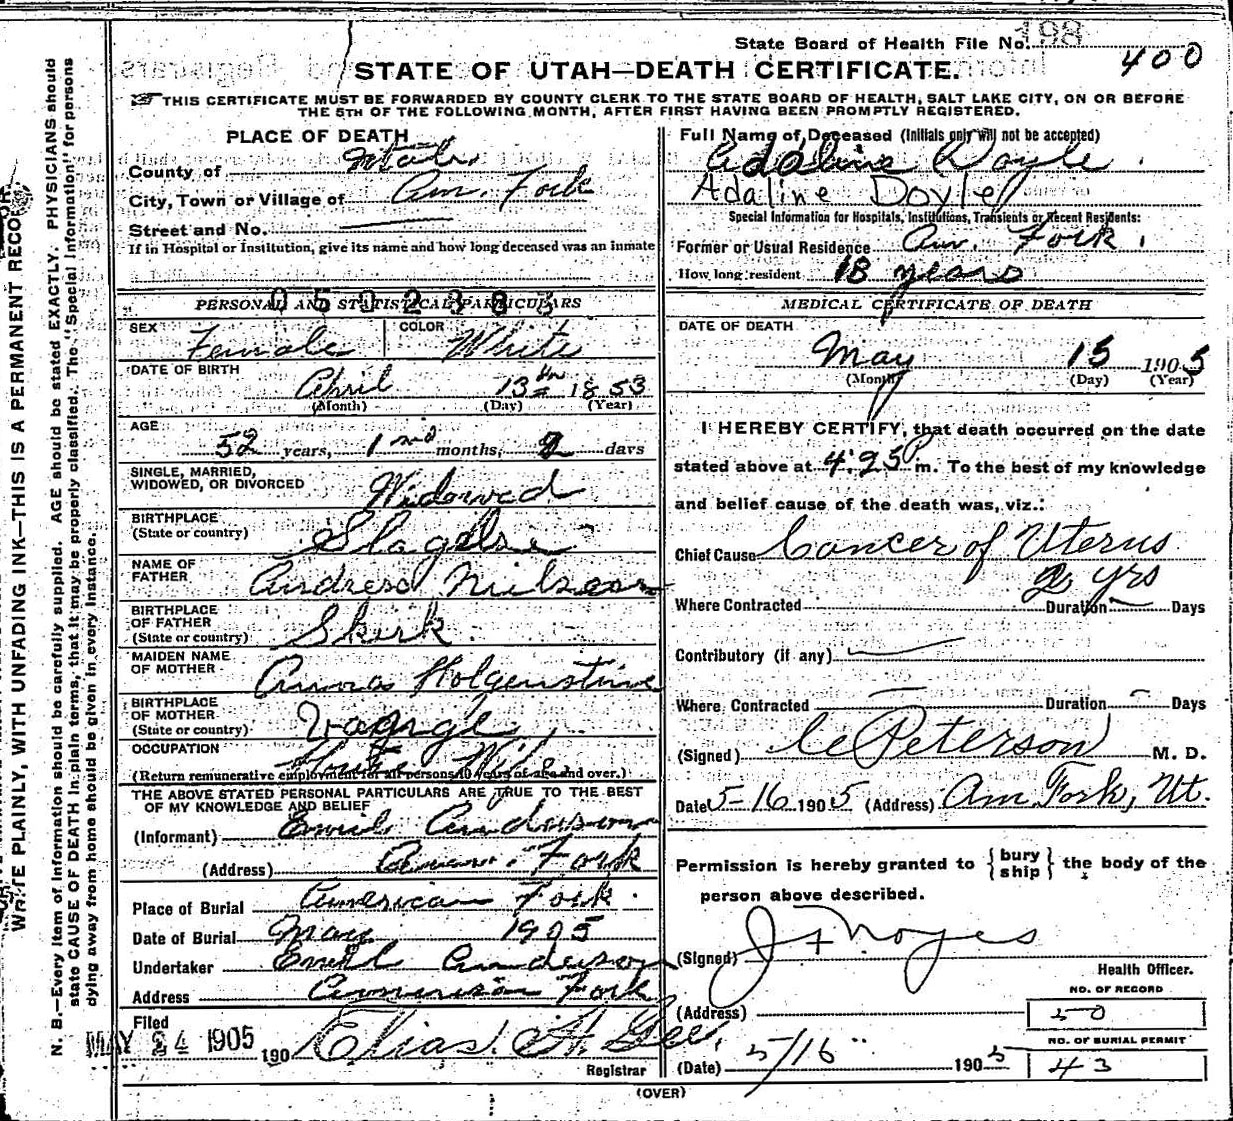 State Board of Health File No. 198
400
STATE OF UTAH—DEATH CERTIFICATE.
THIS CERTIFICATE MUST BE FORWARDED BY COUNTY CLERK TO THE STATE BOARD OF HEALTH, SALT LAKE CITY, ON OR BEFORE
THE 5TH OF THE FOLLOWING MONTH, AFTER FIRST HAVING BEEN PROMPTLY REGISTERED.
PLACE OF DEATH
County of Utah
City, Town or Village of Am. Fork
Street and No.
If in Hospital or Institution, give its name and how long deceased was an inmate
PERSONAL AND STATISTICAL PARTICULARS
SEX Female COLOR White
DATE OF BIRTH
April 13th 1853
(Month) (Day) (Year)
AGE
52 years, 1 months, 2 days
SINGLE, MARRIED,
WIDOWED, OR DIVORCED Widowed
BIRTHPLACE
(State or country) Slagelse
NAME OF
FATHER Andress Nielsen
BIRTHPLACE
OF FATHER
(State or country)
MAIDEN NAME
OF MOTHER Anna Holgenstine
BIRTHPLACE
OF MOTHER
(State or country)
OCCUPATION House Wife
(Return remunerative employment for all persons 10 years of age and over.)
THE ABOVE STATED PERSONAL PARTICULARS ARE TRUE TO THE BEST
OF MY KNOWLEDGE AND BELIEF
(Informant) Emil Anderson
(Address) Amer. Fork
Place of Burial American Fork.
Date of Burial May 1905
Undertaker Emil Anderson
Address American Fork
Filed
MAY 24 1905 190 Elias A. Gee,
Registrar
Full Name of Deceased (Initials only will not be accepted)
Adaline Doyle.
Adaline Doyle
Special Information for Hospitals, Institutions, Transients or Recent Residents:
Former or Usual Residence Am. Fork.
How long resident 18 years
MEDICAL CERTIFICATE OF DEATH
DATE OF DEATH
May 15 1905
(Month) (Day) (Year)
I HEREBY CERTIFY, that death occurred on the date
stated above at 4:25 P m. To the best of my knowledge
and belief cause of the death was, viz.:
Chief Cause Cancer of Uterus
2 yrs
Where Contracted Duration Days
Contributory (if any)
Where Contracted Duration Days
(Signed) Peterson M. D.
Date 5-16 1905 (Address) Am Fork, Ut.
Permission is hereby granted to { bury ship } the body of the
person above described.
(Signed) J F Noyes
Health Officer.
NO. OF RECORD
(Address) 50
NO. OF BURIAL PERMIT
(Date) 5/16 1905 43
(OVER)
WRITE PLAINLY, WITH UNFADING INK—THIS IS A PERMANENT RECORD
N. B.—Every item of information should be carefully supplied. AGE should be stated EXACTLY. PHYSICIANS should
state CAUSE OF DEATH in plain terms, that it may be properly classified. The "Special Information" for persons
dying away from home should be given in every instance.